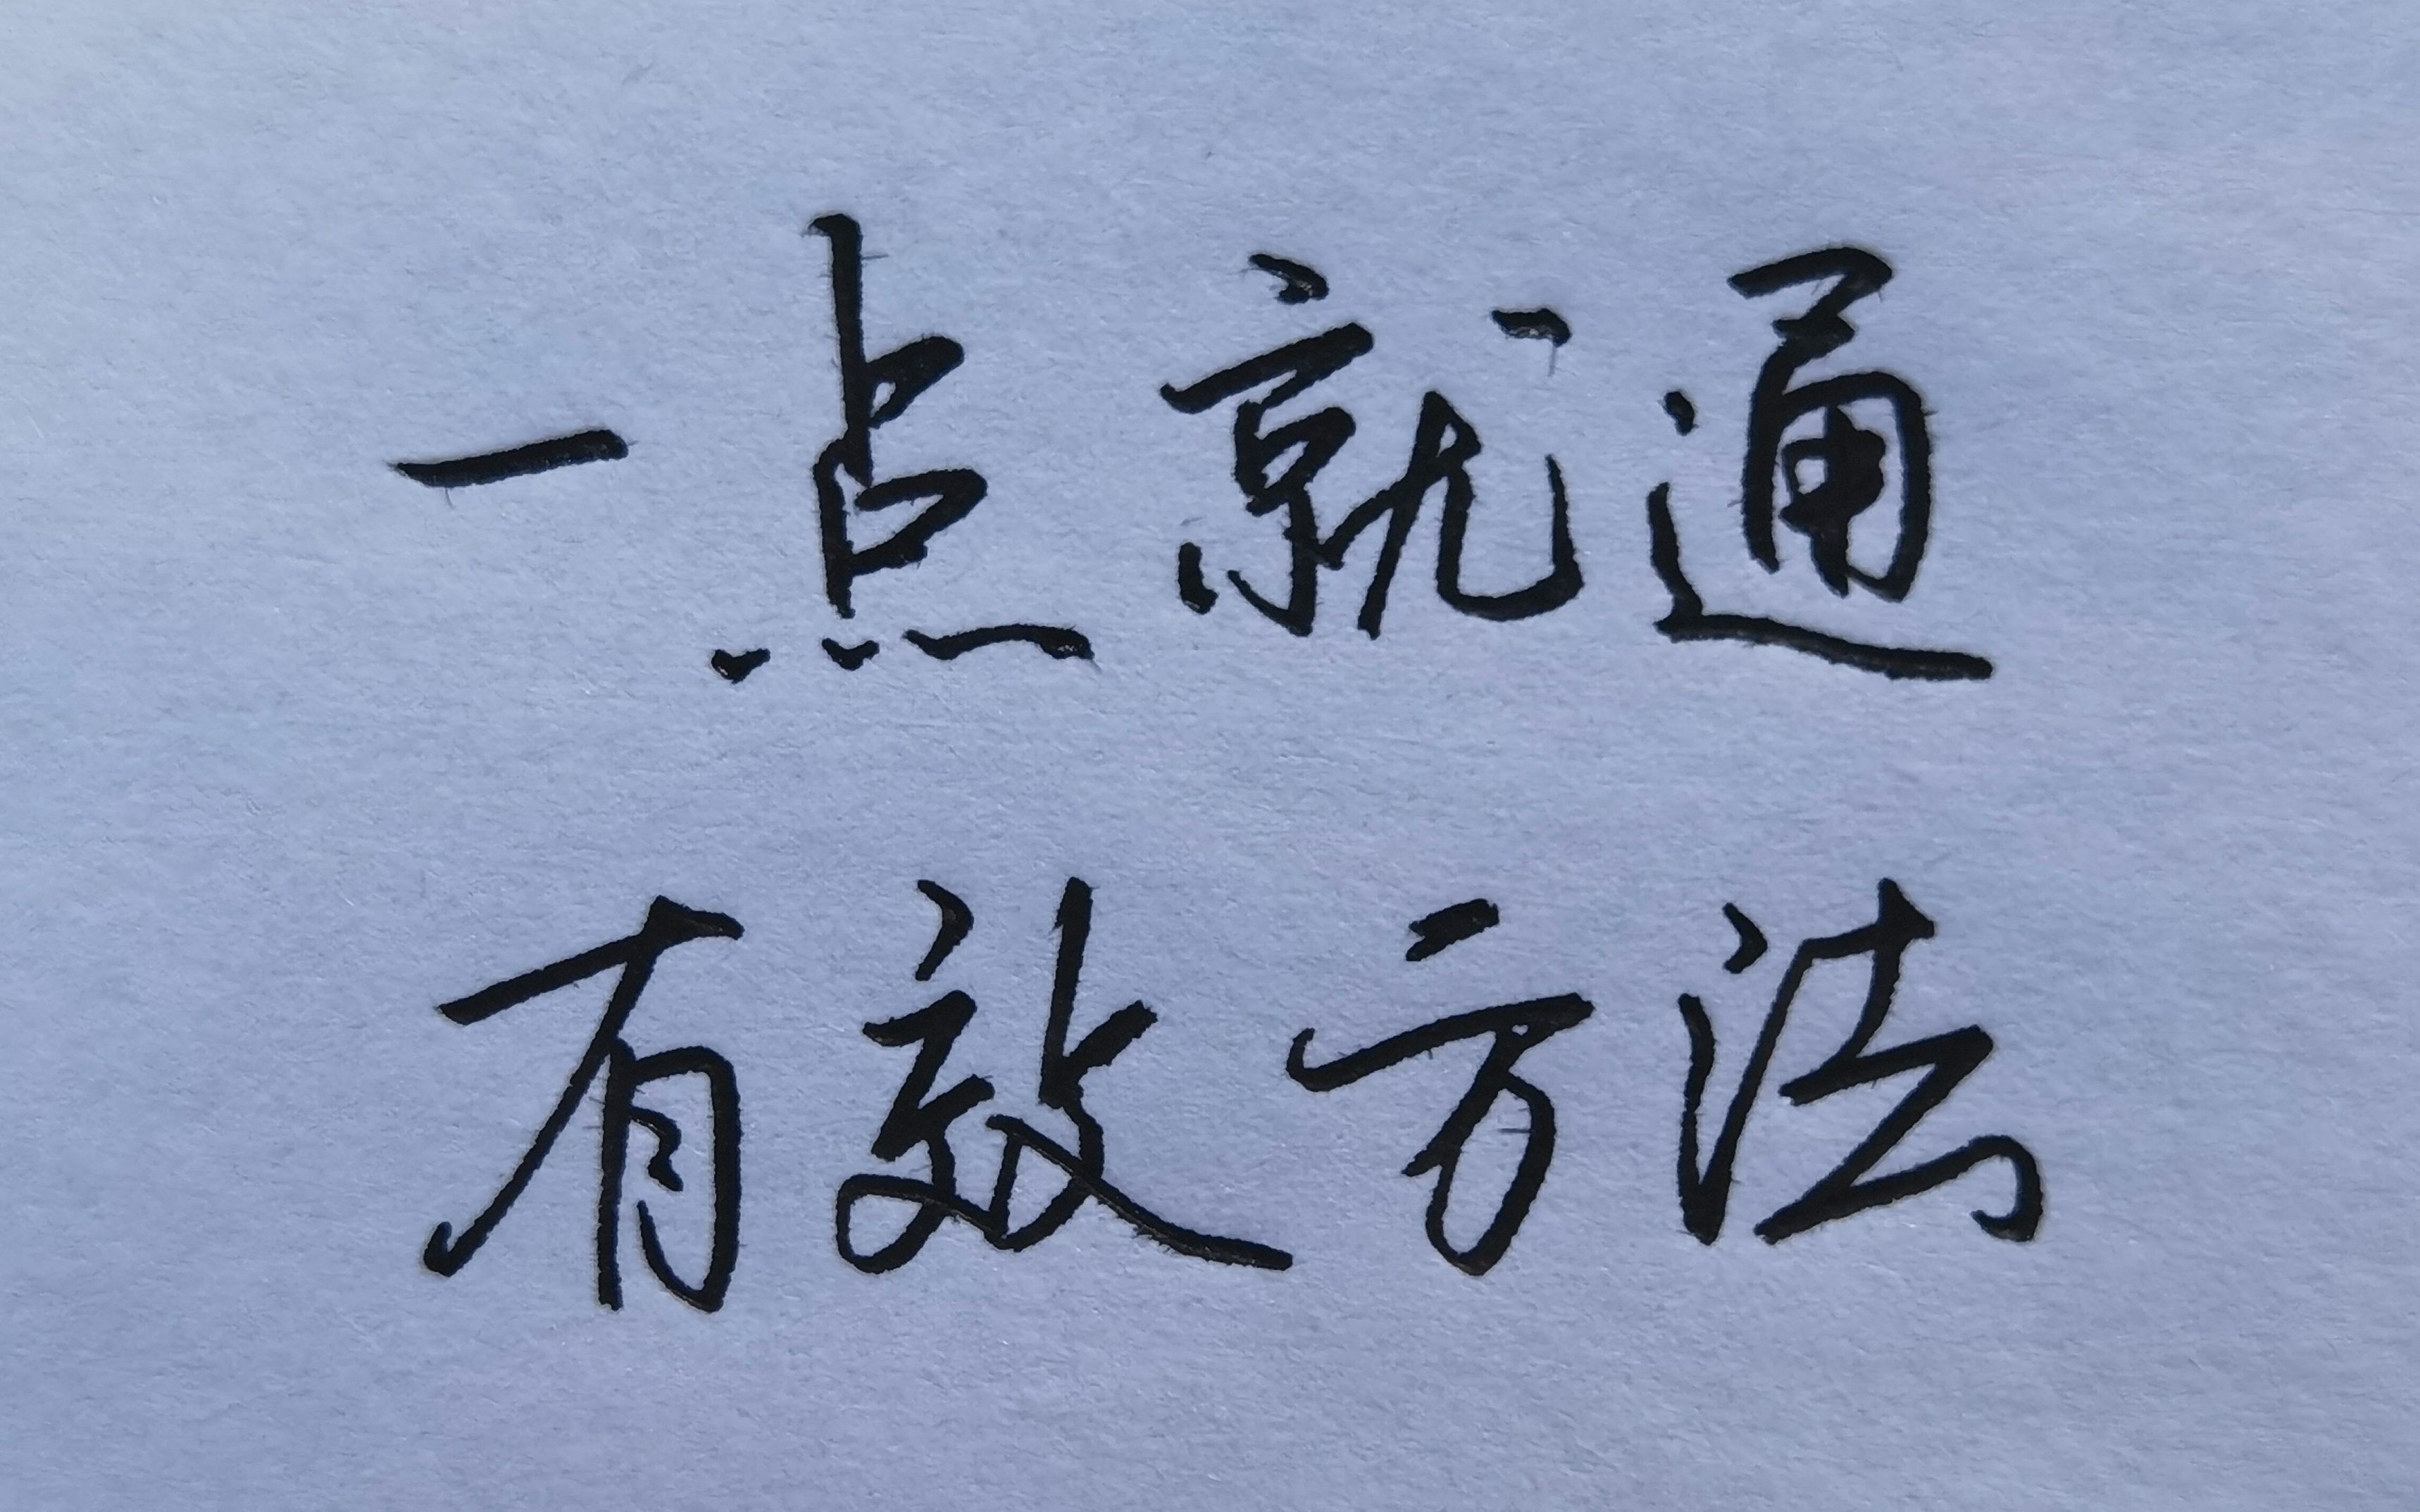 一点就通
有效方法